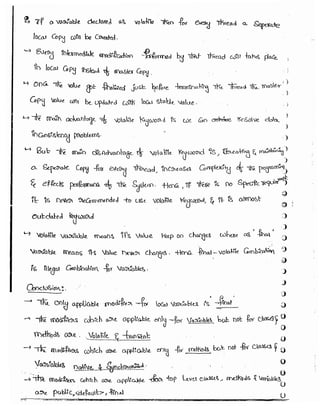 If a variable declared as volatile then for every Thread a separate
local copy will be created.
→ Every intermediate modification performed by that Thread will takes place
in local copy instead of master copy.
→ once the value got finalized just before terminating the Thread the master
copy value will be updated with local stable value.
→ the main advantage of volatile keyword is we can resolve data
inconsistency problems.
→ But the main disadvantage of volatile keyword is, creating & maintaining
a separate copy for every thread, increases complexity of the programming
& effects performance of the system. Hence, if there is no specific requirement
it is never recommended to use volatile keyword, & it is almost
outdated keyword
→ volatile variable means it's value keep on changes where as 'final'
variable means its value never changes. Hence final-volatile combination
is illegal combination for variables.
Conclusions:
→ The only applicable modifier for local variables is final
→ The modifiers which are applicable only for variables but not for classes &
methods are volatile & transient
→ The modifiers which are applicable only for methods but not for classes &
variables native & synchronized
→ The modifiers which are applicable for top level classes, methods & variables
are public, <default>, final